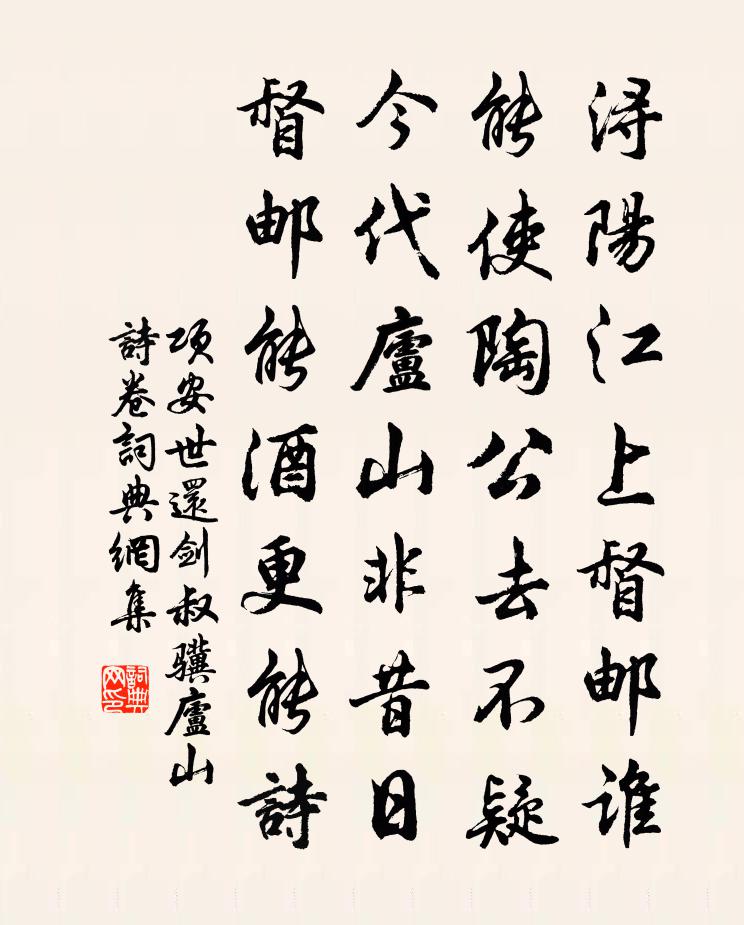 浔陽江上督邮谁
能使陶公去不疑
今代廬山非昔日
督邮能酒更能詩
项安世還剑叔骥廬山
詩卷詞典網集
詞典网印